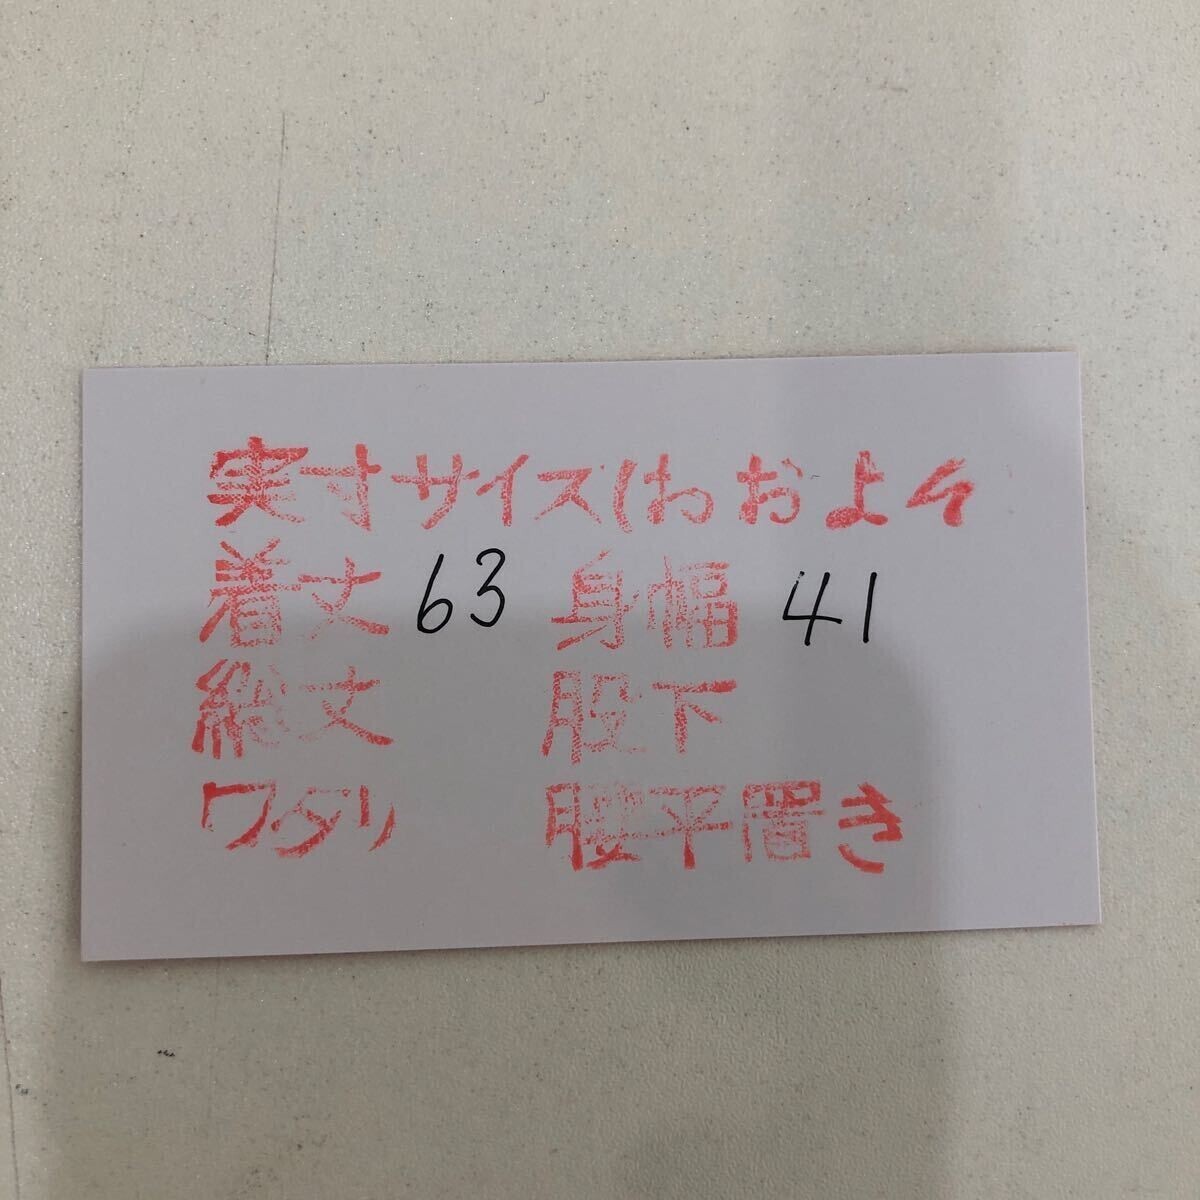 実寸サイズ(わおよそ
着丈 63 身幅 41
総丈 股下
ワタリ 腰平置き